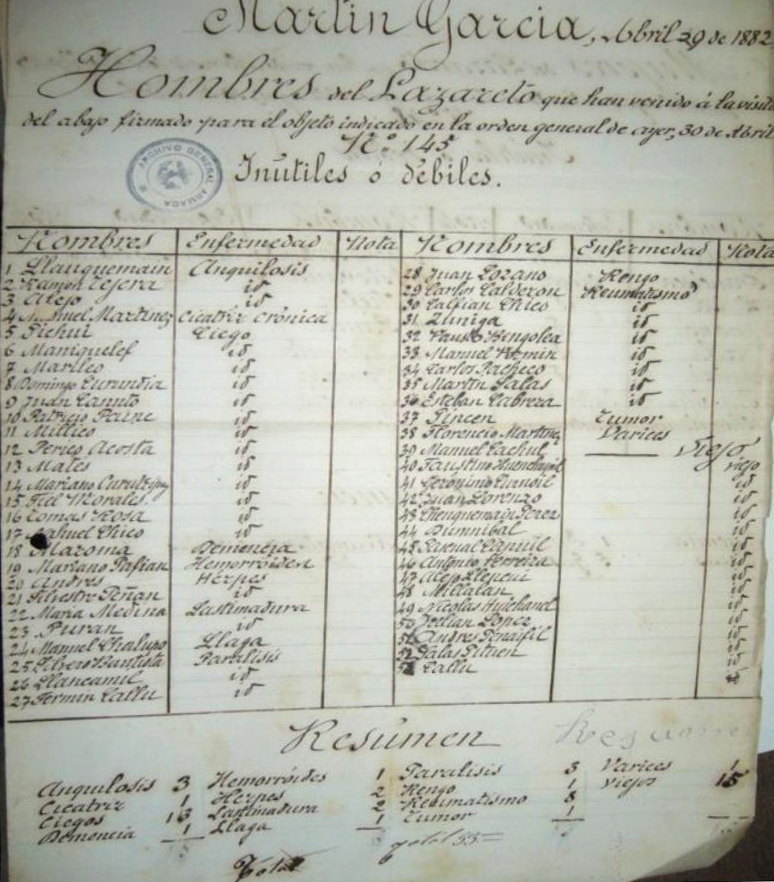 Martin Garcia, Abril 29 de 1882
Hombres del Lazareto que han venido á la visita
del abajo firmado para el objeto indicado en la orden general de ayer, 30 de Abril
Nº 145
ARCHIVO GENERAL ARMADA
Inútiles ó débiles.
Nombres Enfermedad Nota Nombres Enfermedad Nota
1 Llauquemain Anquilosis
2 Ramon Tejera id
3 Alejo id
4 Manuel Martinez Cicatriz crónica
5 Pichui Ciego
6 Maniquelef id
7 Marileo id
8 Domingo id
9 Juan id
10 Patricio Paine id
11 Millico id
12 Perico Acosta id
13 Males id
14 Mariano id
15 Fiel Morales id
16 Tomas Rosa id
17 Nahuel Chico id
18 Maroma Demencia
19 Mariano Hemorróiden
20 Andres Herpes
21 Silvestre Peñan id
22 Maria Medina Lastimadura
23 Puran id
24 Manuel Chalupo Llaga
25 Bautista Paralisis
26 Llancamil id
27 Fermin Callu id
28 Juan Lozano Rengo
29 Carlos Calderon Reumatismo
30 Calfian Chico id
31 Zuñiga id
32 Fausto Mengolea id
33 Manuel id
34 Carlos Pacheco id
35 Martin Salas id
36 Esteban Cabrera id
37 Pincen Tumor
38 Florencio Martinez Varices
39 Manuel Viejo
40 Faustino viejo
41 Gerónimo id
42 Juan Lorenzo id
43 Perez id
44 id
45 id
46 Antonio Ferreira id
47 Alejo id
48 id
49 Nicolas id
50 Julian Lopez id
51 Andres id
52 Salas id
53 Callu
Resúmen Resumen
Anquilosis 3 Hemorróides 1 Paralisis 3 Varices 1
Cicatriz 1 Herpes 2 Rengo 1 viejos 15
Ciegos 13 Lastimadura 2 Reumatismo 8
Demencia 1 Llaga 1 Tumor 1
Total total 53=